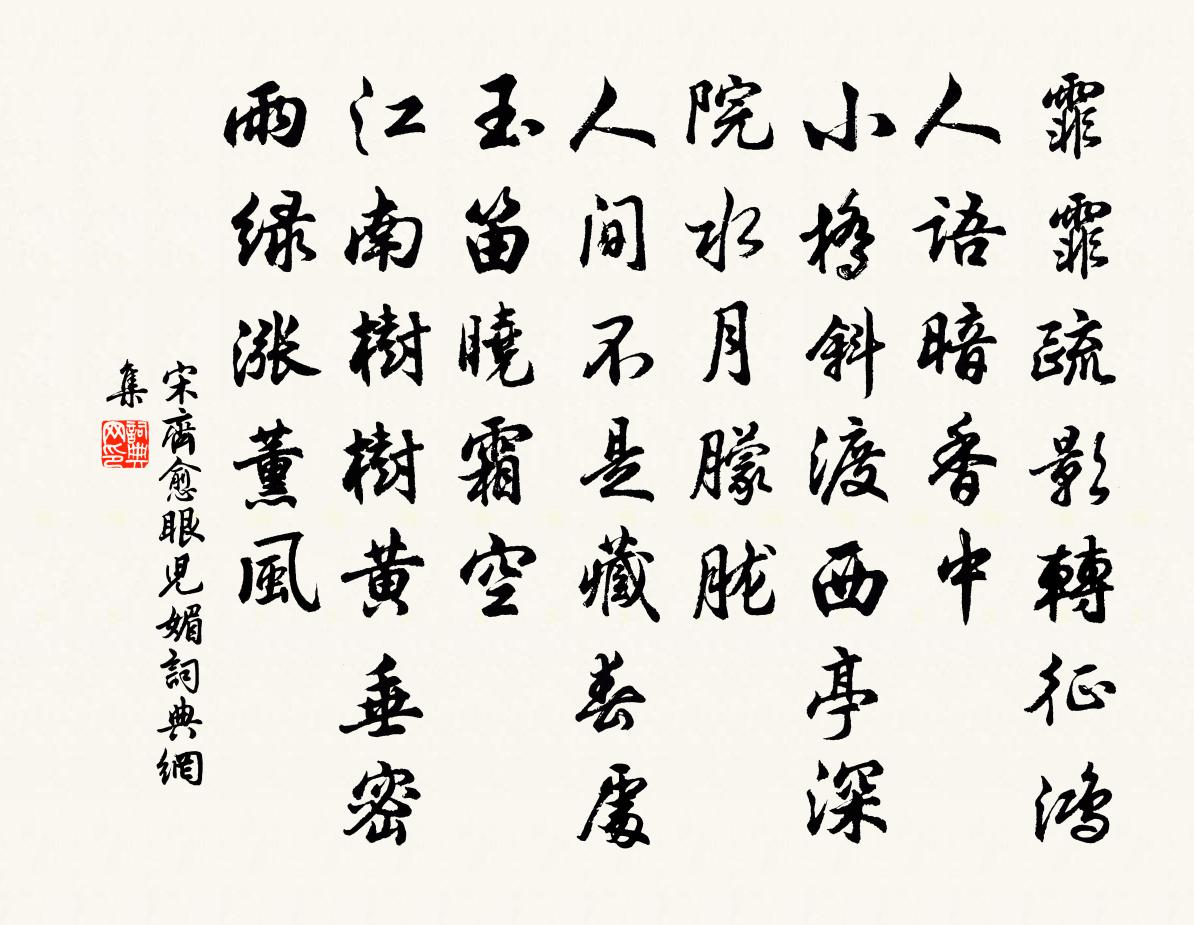 霏霏疏影轉征鴻
人語暗香中
小橋斜渡西亭深
院水月朦朧
人間不是藏春處
玉笛曉霜空
江南樹樹黄垂密
雨緑漲薰風
宋齊愈眼児媚詞典網
集
詞典网印